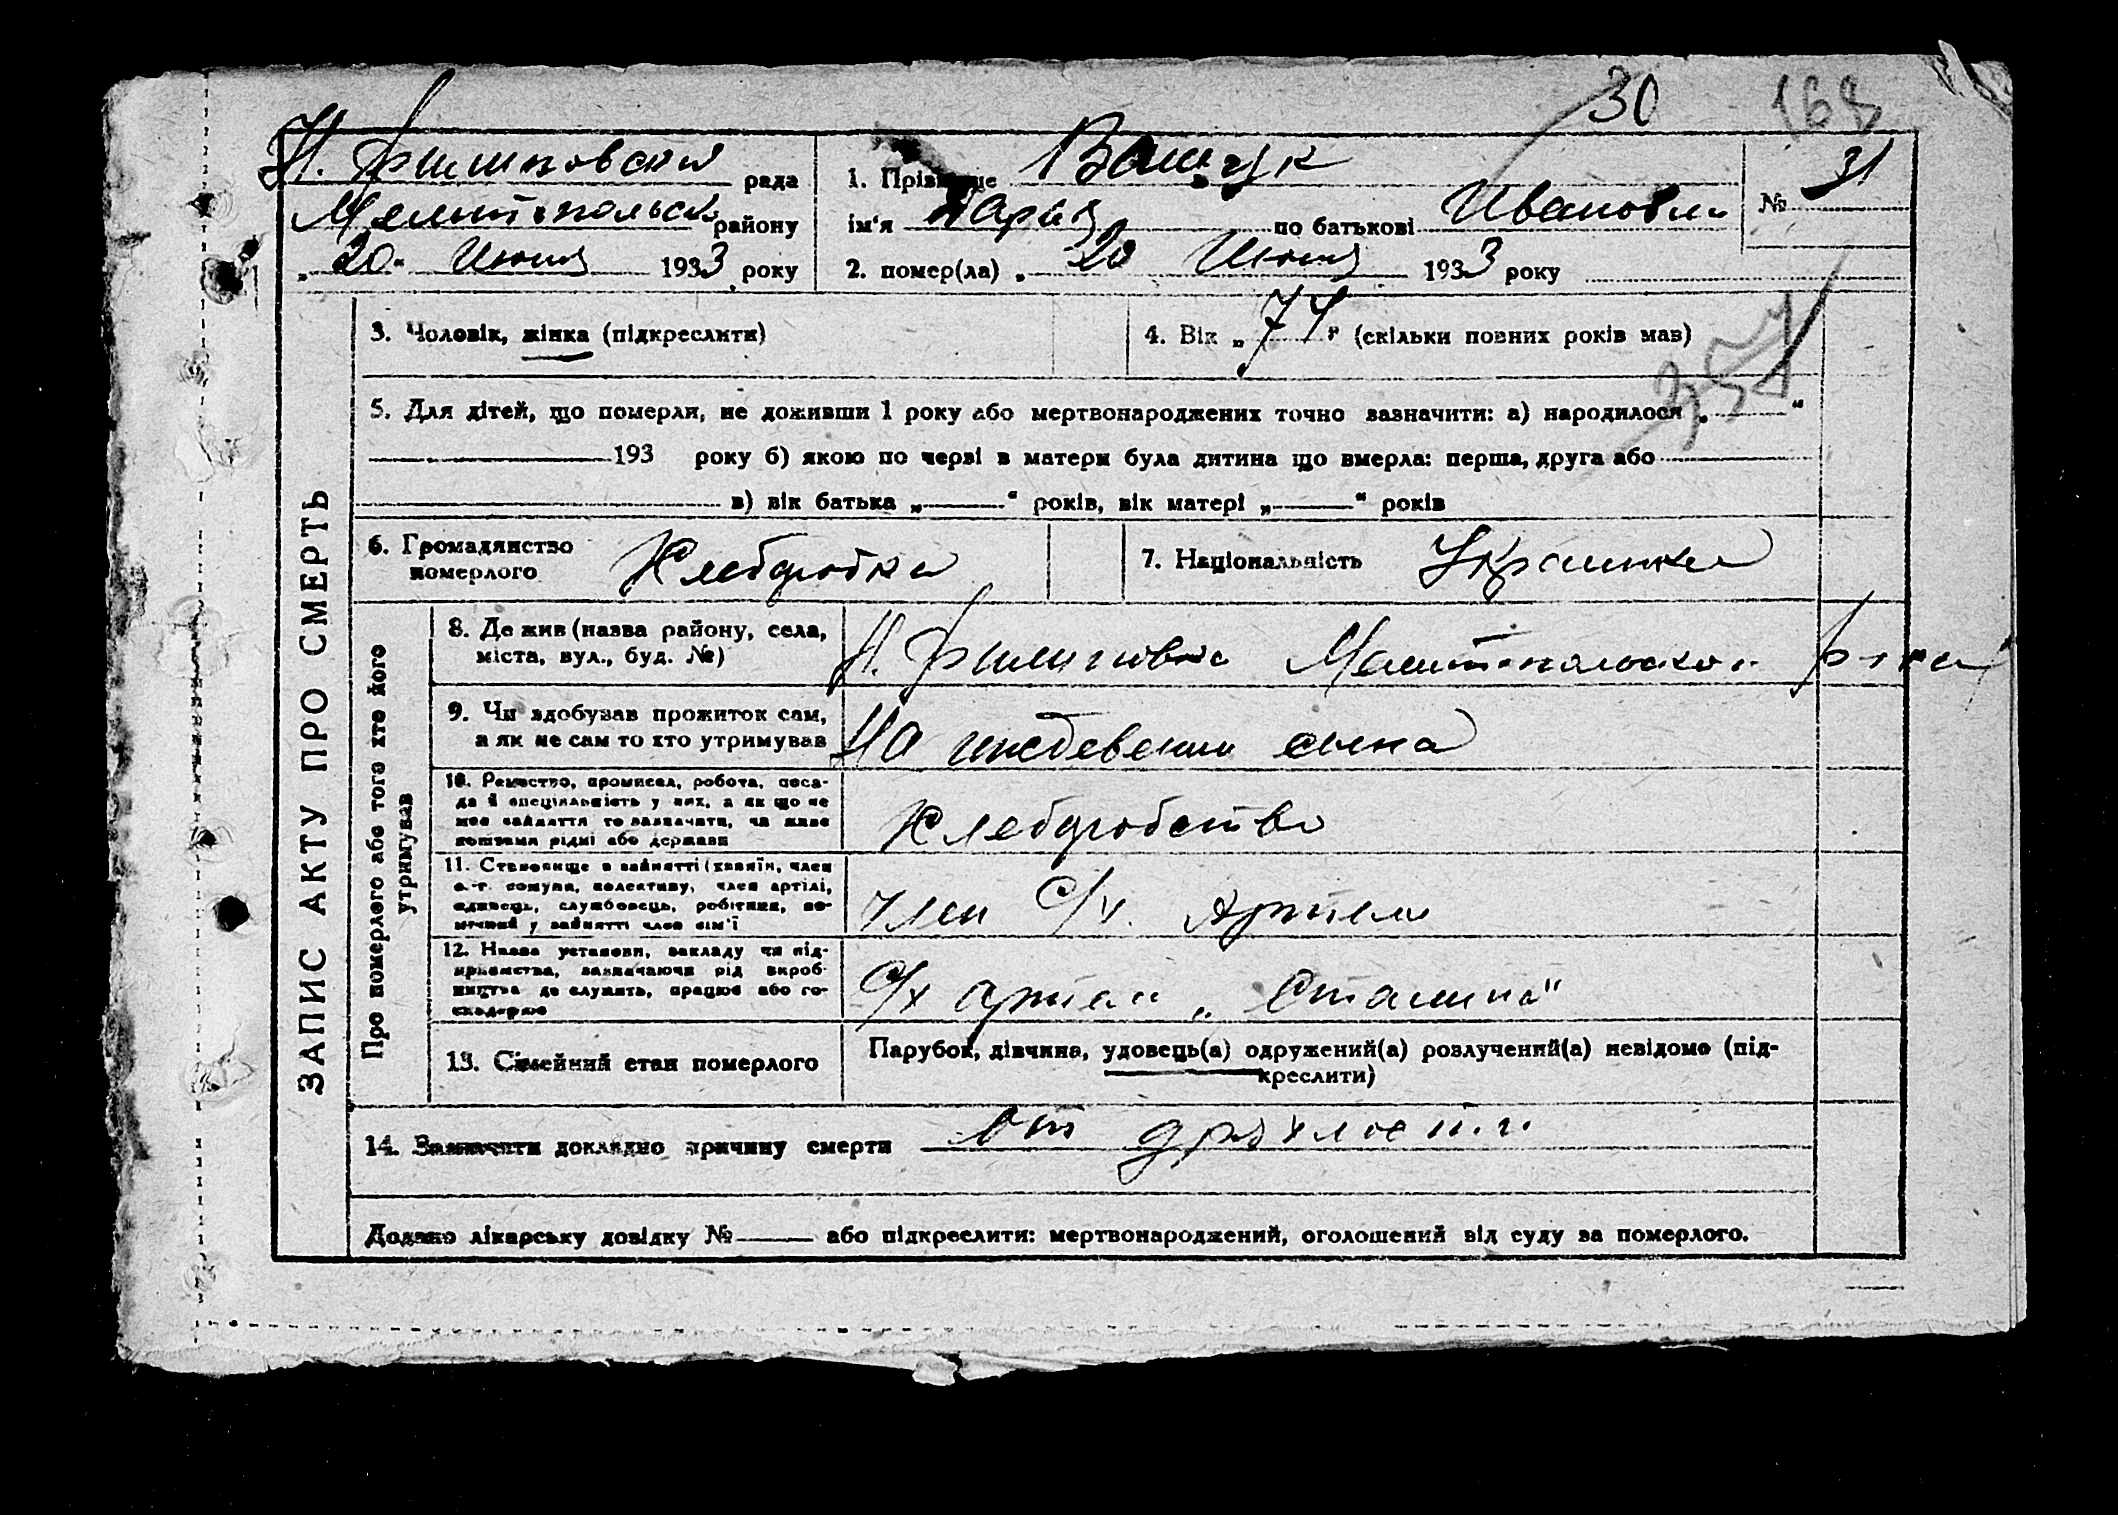 30 168
Н. Филиповский рада
Мелитопольск. району
„ 20 “ Июня 1933 року
1. Прізвище Ващук
ім'я Дарья по батькові Ивановна
№ 31
2. помер(ла) „ 20 Июня 1933 року
3. Чоловік, жінка (підкреслити)
4. Вік „ 74 “ (скільки повних років мав)
5. Для дітей, що померли, не доживши 1 року або мертвонароджених точно зазначити: а) народилося „ “
193 року б) якою по черві в матери була дитина що вмерла: перша, друга або
в) вік батька „ “ років, вік матері „ “ років
6. Громадянство
померлого Хлеборобка
7. Національність Украинка
ЗАПИС АКТУ ПРО СМЕРТЬ
Про померлого або того хто його
утримував
8. Де жив (назва району, села,
міста, вул., буд. №)
Н. Филиповка Мелитопольского р-на
9. Чи здобував прожиток сам,
а як не сам то хто утримував
На иждевении сына
10. Ремество, промисел, робота, поса-
да й спеціяльність у них, а як що не
мав заняття то зазначити, чи живе
коштами рідні або держави
Хлеборобство
11. Становище в занятті (хазяїн, член
с.-г. комуни, колективу, член артілі,
одинець, службовець, робітник, по-
мічний у занятті член сім'ї
Член С/х. Артели
12. Назва установи, закладу чи під-
приємства, зазначаючи рід вироб-
ництва де служить, працює або го-
сподарює
С/х артель „Сталина“
13. Сімейний стан померлого
Парубок, дівчина, удовець(а) одружений(а) розлучений(а) невідомо (під-
креслити)
14. Зазначити докладно причину смерти от дряхлости
Додано лікарську довідку № або підкреслити: мертвонароджений, оголошений від суду за померлого.